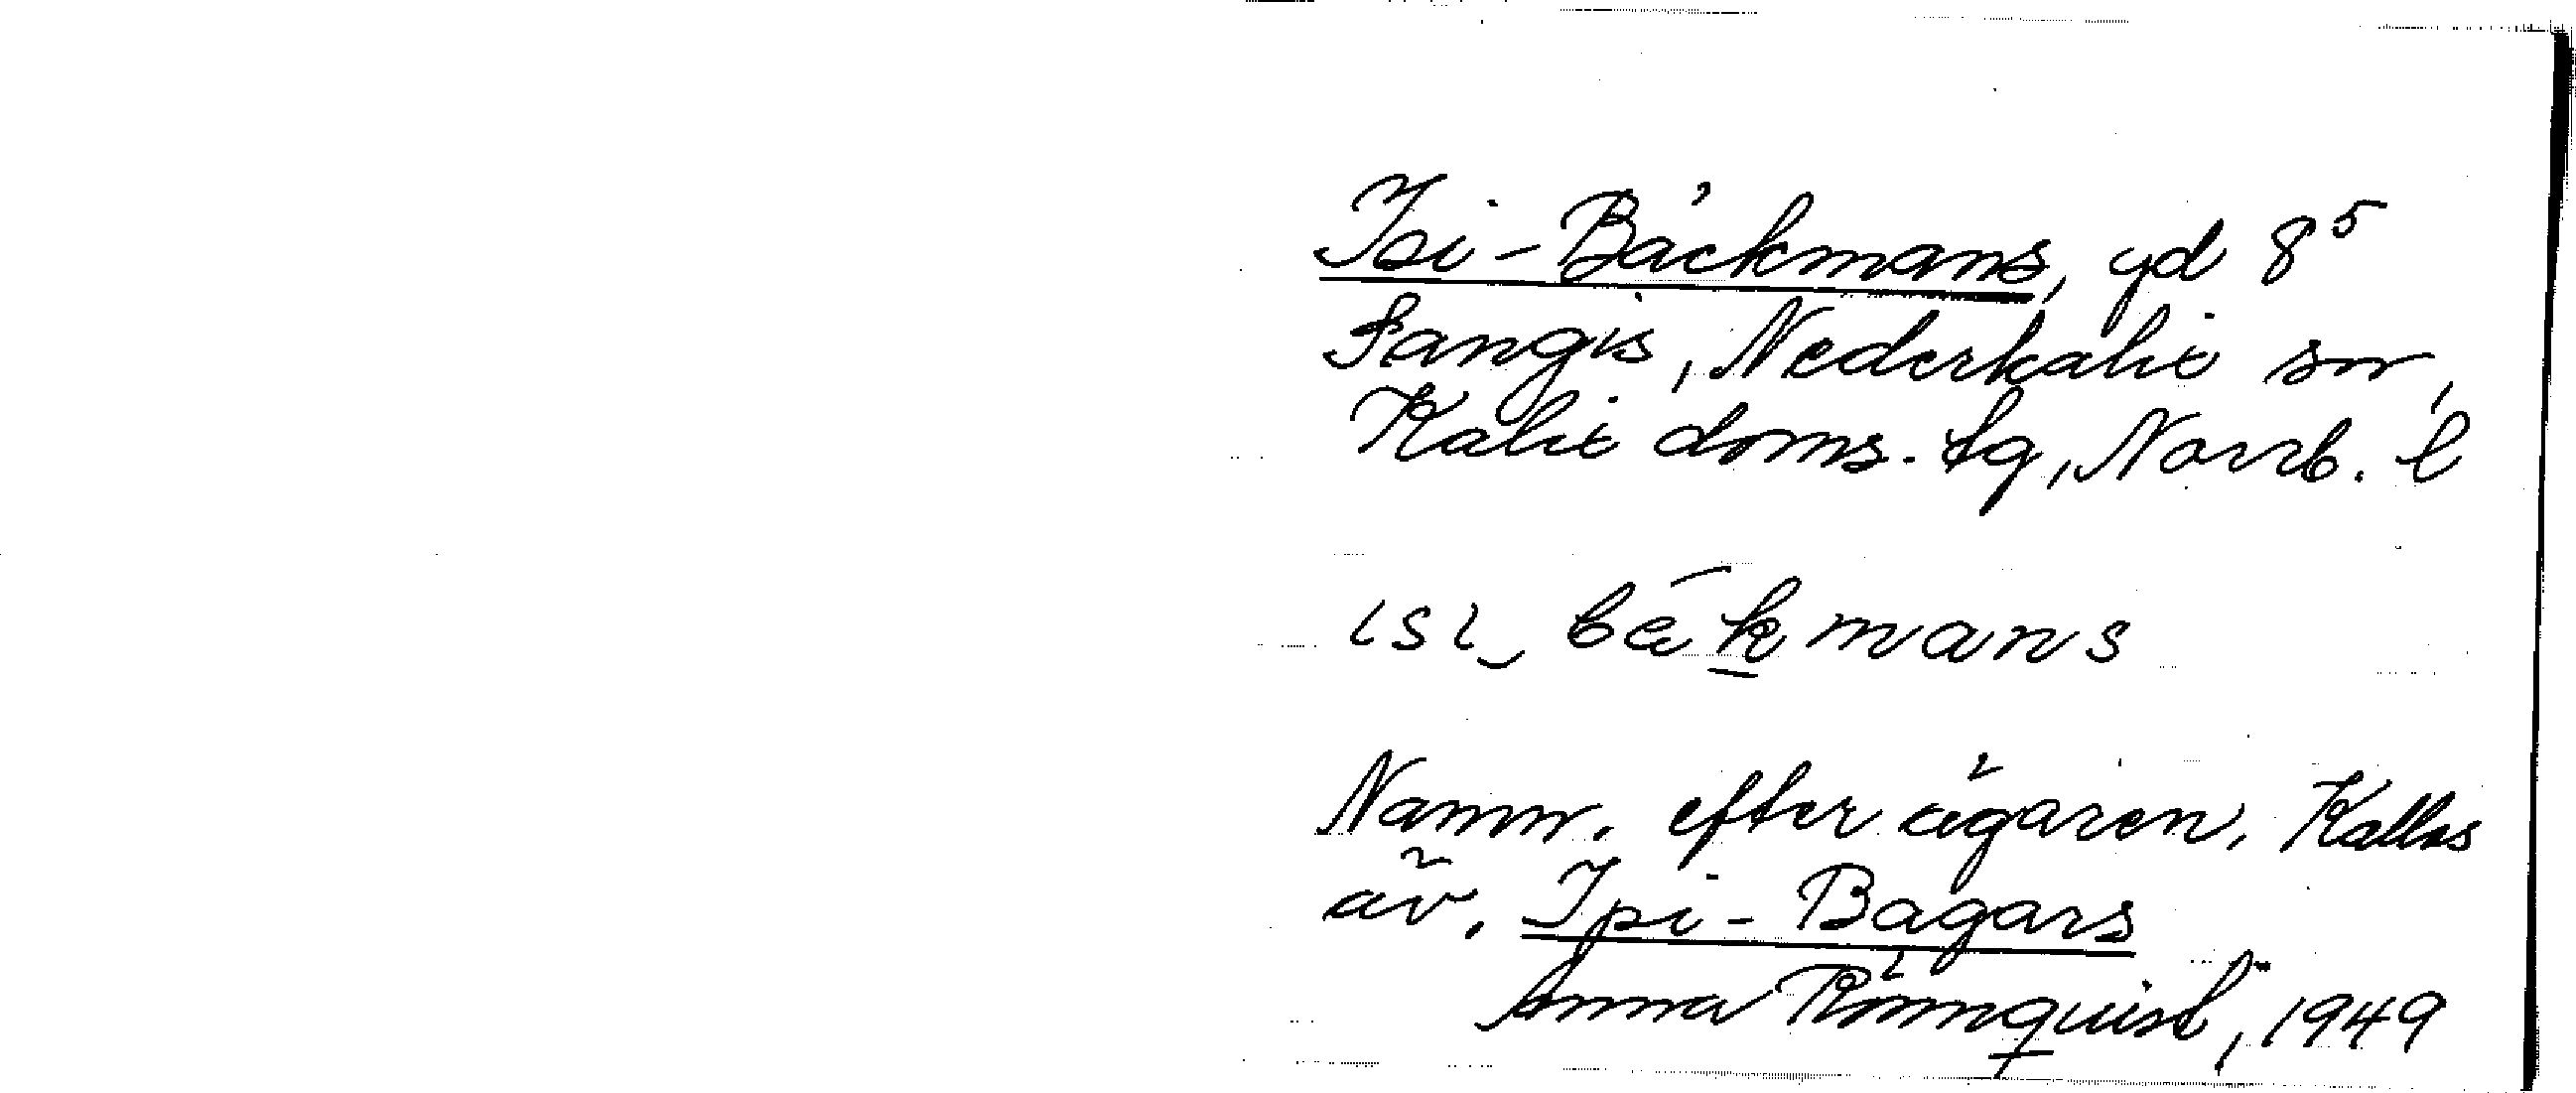 Isi-Bäckmans, gd 8⁵
Sangis, Nederkalix sn,
Kalix doms. tg, Norrb. l
ɩsɩ‿bäkmans
Namn. efter ägaren. Kallas
äv. Ipi-Bagars
Anna Rönnquist, 1949